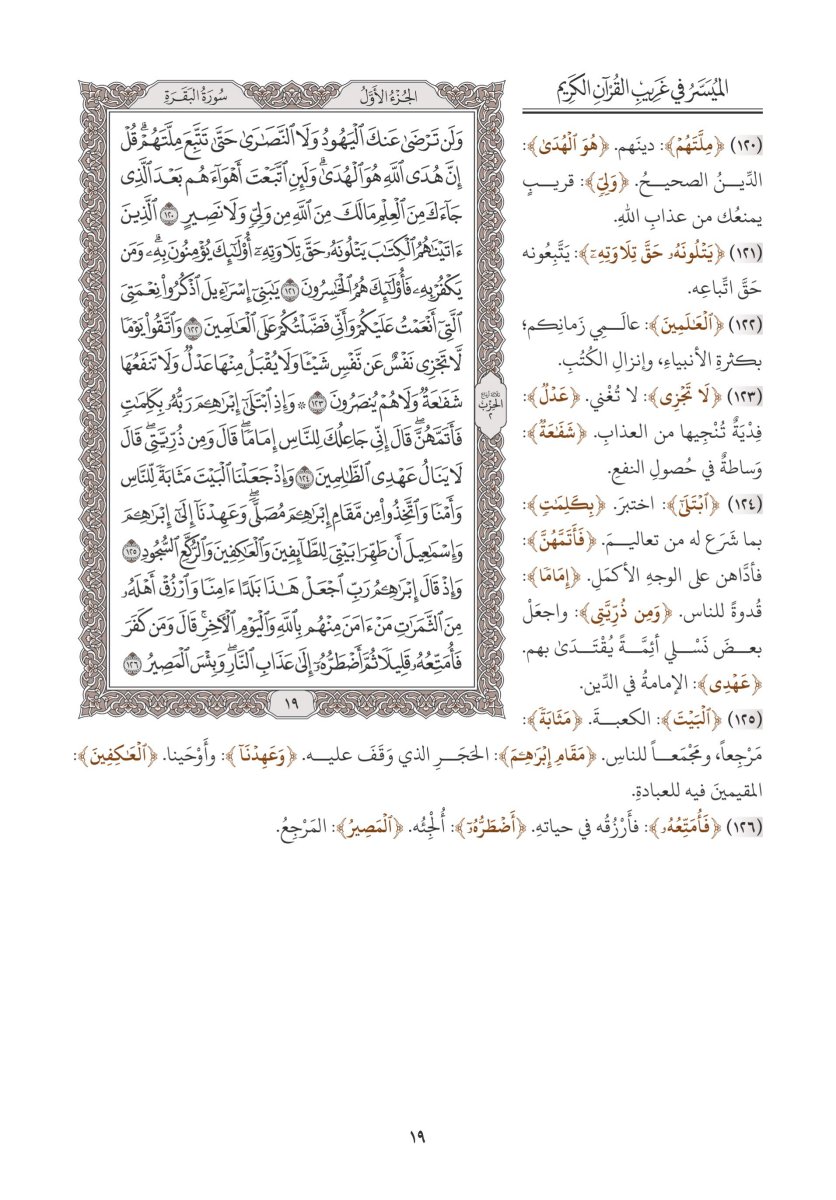 الميُسَّرُ في غَرِيبِ القُرْآنِ الكَرِيمِ
(١٢٠) ﴿مِلَّتَهُمْ﴾: دينَهم. ﴿هُوَ ٱلْهُدَىٰ﴾:
الدِّيــنُ الصحيــحُ. ﴿وَلِيّٖ﴾: قريــبٍ
يمنعُك من عذابِ اللهِ.
(١٢١) ﴿يَتْلُونَهُۥ حَقَّ تِلَاوَتِهِۦٓ﴾: يَتَّبِعُونه
حَقَّ اتِّباعِه.
(١٢٢) ﴿ٱلْعَٰلَمِينَ﴾: عالَـمِي زَمانِكم؛
بكثرةِ الأنبياءِ، وإنزالِ الكُتُبِ.
(١٢٣) ﴿لَّا تَجْزِى﴾: لا تُغْني. ﴿عَدْلٌ﴾:
فِدْيَةٌ تُنْجِيها من العذابِ. ﴿شَفَٰعَةٌ﴾:
وَساطةٌ في حُصولِ النفعِ.
(١٢٤) ﴿ٱبْتَلَىٰٓ﴾: اختبرَ. ﴿بِكَلِمَٰتٍ﴾:
بما شَرَع له من تعاليـمَ. ﴿فَأَتَمَّهُنَّ﴾:
فأدَّاهن على الوجهِ الأكمَلِ. ﴿إِمَامًا﴾:
قُدوةً للناس. ﴿وَمِن ذُرِّيَّتِى﴾: واجعَلْ
بعـضَ نَسْـلي أئِمَّـــةً يُقْتَـدَىٰ بهم.
﴿عَهْدِى﴾: الإمامةُ في الدِّين.
(١٢٥) ﴿ٱلْبَيْتَ﴾: الكعبــةَ. ﴿مَثَابَةً﴾:
مَرْجِعاً، ومَجْمَعـــاً للناسِ. ﴿مَقَامِ إِبْرَٰهِـۧمَ﴾: الحَجَـرِ الذي وَقَفَ عليـــه. ﴿وَعَهِدْنَآ﴾: وأَوْحَينا. ﴿ٱلْعَٰكِفِينَ﴾:
المقيمينَ فيه للعبادةِ.
(١٢٦) ﴿فَأُمَتِّعُهُۥ﴾: فأرْزُقُه في حياتهِ. ﴿أَضْطَرُّهُۥٓ﴾: أُلْجِئُه. ﴿ٱلْمَصِيرُ﴾: المَرْجِعُ.
الجُزْءُ الأَوَّلُ
سُورَةُ البَقَرَةِ
وَلَن تَرْضَىٰ عَنكَ ٱلْيَهُودُ وَلَا ٱلنَّصَٰرَىٰ حَتَّىٰ تَتَّبِعَ مِلَّتَهُمْۗ قُلْ
إِنَّ هُدَى ٱللَّهِ هُوَ ٱلْهُدَىٰۗ وَلَئِنِ ٱتَّبَعْتَ أَهْوَآءَهُم بَعْدَ ٱلَّذِى
جَآءَكَ مِنَ ٱلْعِلْمِ مَا لَكَ مِنَ ٱللَّهِ مِن وَلِىٍّ وَلَا نَصِيرٍ ١٢٠ ٱلَّذِينَ
ءَاتَيْنَٰهُمُ ٱلْكِتَٰبَ يَتْلُونَهُۥ حَقَّ تِلَاوَتِهِۦٓ أُو۟لَٰٓئِكَ يُؤْمِنُونَ بِهِۦۗ وَمَن
يَكْفُرْ بِهِۦ فَأُو۟لَٰٓئِكَ هُمُ ٱلْخَٰسِرُونَ ١٢١ يَٰبَنِىٓ إِسْرَٰٓءِيلَ ٱذْكُرُوا۟ نِعْمَتِىَ
ٱلَّتِىٓ أَنْعَمْتُ عَلَيْكُمْ وَأَنِّى فَضَّلْتُكُمْ عَلَى ٱلْعَٰلَمِينَ ١٢٢ وَٱتَّقُوا۟ يَوْمًا
لَّا تَجْزِى نَفْسٌ عَن نَّفْسٍ شَيْـًٔا وَلَا يُقْبَلُ مِنْهَا عَدْلٌ وَلَا تَنفَعُهَا
شَفَٰعَةٌ وَلَا هُمْ يُنصَرُونَ ١٢٣ ۞ وَإِذِ ٱبْتَلَىٰٓ إِبْرَٰهِـۧمَ رَبُّهُۥ بِكَلِمَٰتٍ
فَأَتَمَّهُنَّۖ قَالَ إِنِّى جَاعِلُكَ لِلنَّاسِ إِمَامًاۖ قَالَ وَمِن ذُرِّيَّتِىۖ قَالَ
لَا يَنَالُ عَهْدِى ٱلظَّٰلِمِينَ ١٢٤ وَإِذْ جَعَلْنَا ٱلْبَيْتَ مَثَابَةً لِّلنَّاسِ
وَأَمْنًا وَٱتَّخِذُوا۟ مِن مَّقَامِ إِبْرَٰهِـۧمَ مُصَلًّىۖ وَعَهِدْنَآ إِلَىٰٓ إِبْرَٰهِـۧمَ
وَإِسْمَٰعِيلَ أَن طَهِّرَا بَيْتِىَ لِلطَّآئِفِينَ وَٱلْعَٰكِفِينَ وَٱلرُّكَّعِ ٱلسُّجُودِ ١٢٥
وَإِذْ قَالَ إِبْرَٰهِـۧمُ رَبِّ ٱجْعَلْ هَٰذَا بَلَدًا ءَامِنًا وَٱرْزُقْ أَهْلَهُۥ
مِنَ ٱلثَّمَرَٰتِ مَنْ ءَامَنَ مِنْهُم بِٱللَّهِ وَٱلْيَوْمِ ٱلْـَٔاخِرِۚ قَالَ وَمَن كَفَرَ
فَأُمَتِّعُهُۥ قَلِيلًا ثُمَّ أَضْطَرُّهُۥٓ إِلَىٰ عَذَابِ ٱلنَّارِۖ وَبِئْسَ ٱلْمَصِيرُ ١٢٦
الحِزْب
٢
١٩
١٩